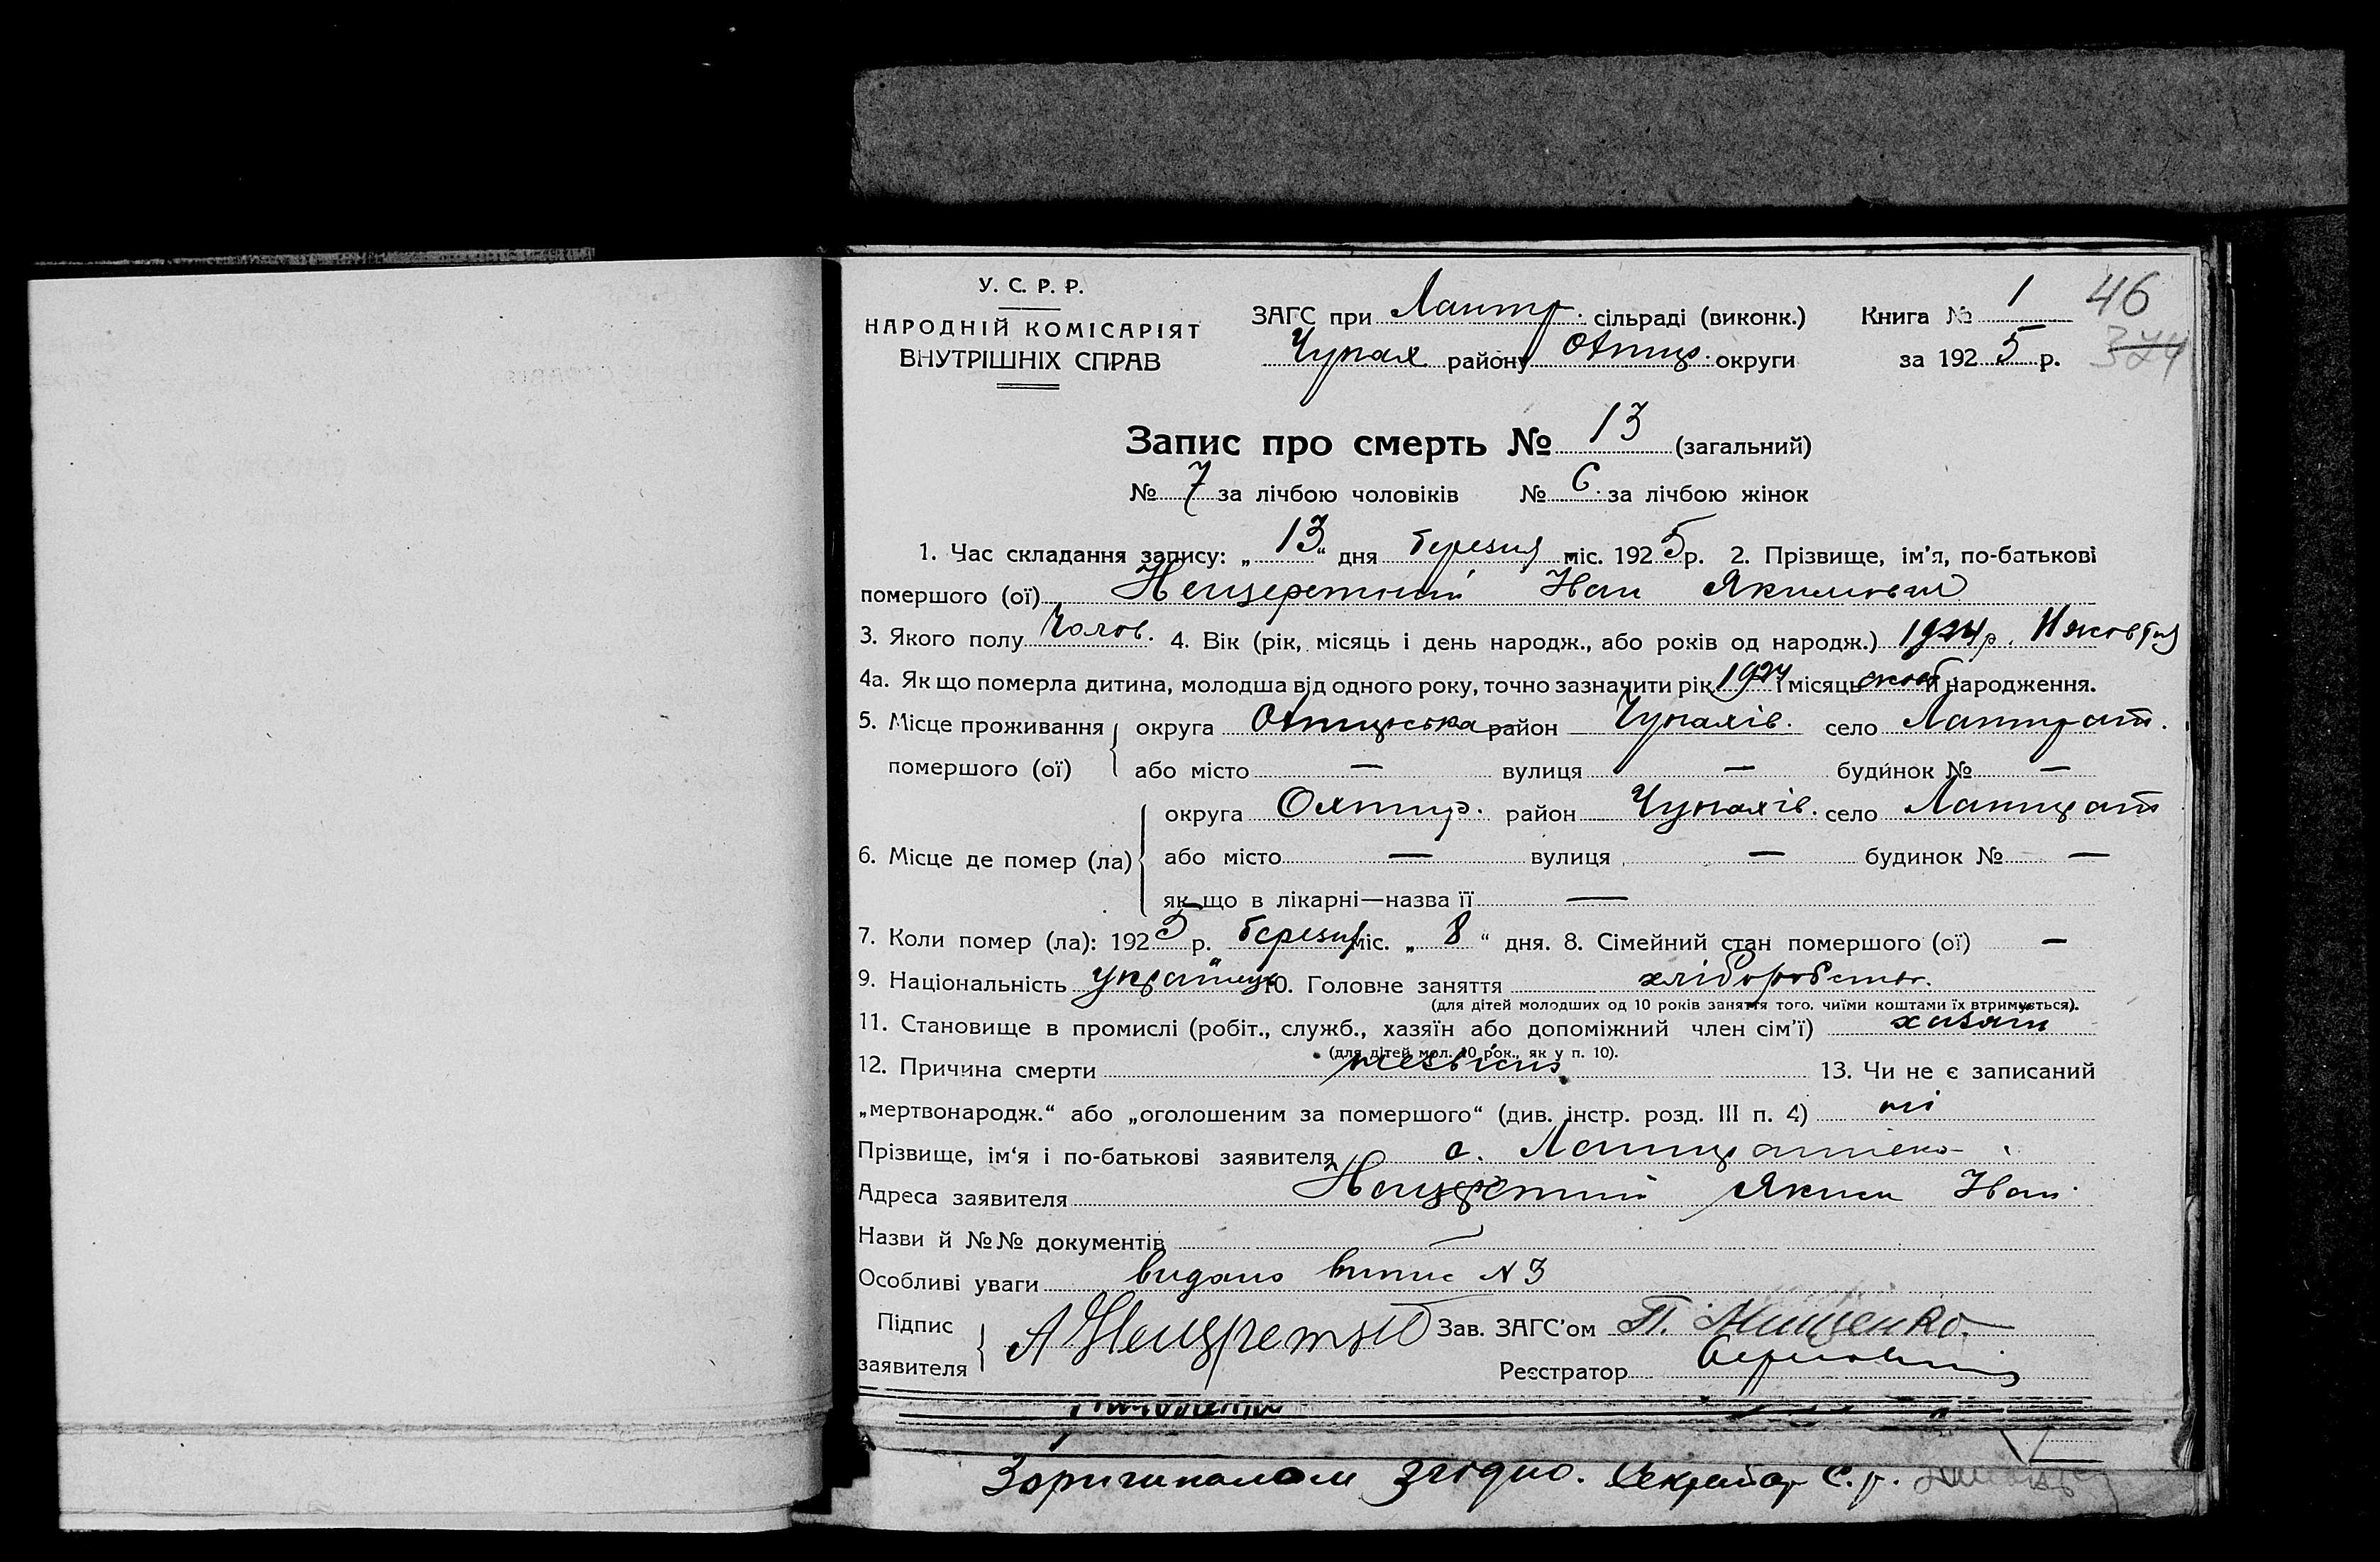 У. С. Р. Р.
НАРОДНІЙ КОМІСАРІЯТ
ВНУТРІШНІХ СПРАВ
ЗАГС при сільраді (виконк.) Книга № 1 46
Чупах району Охтир. округи за 1925 р. 374
Запис про смерть № 13 (загальний)
№ 7 за лічбою чоловіків № 6. за лічбою жінок
1. Час складання запису: „ 13 “ дня березня міс. 1925 р. 2. Прізвище, ім’я, по-батькові
помершого (ої) Нещеретний Іван Якимович
3. Якого полу Чолов. 4. Вік (рік, місяць і день народж., або років од народж.) 1924 р. жовтня
4а. Як що померла дитина, молодша від одного року, точно зазначити рік 1924 і місяць жовт її народження.
5. Місце проживання округа Охтирська район Чупахів. село
помершого (ої) або місто — вулиця — будинок № —
округа Охтир. район Чупахів. село
6. Місце де помер (ла) або місто — вулиця — будинок № —
як що в лікарні—назва її —
7. Коли помер (ла): 1925 р. березня міс. „ 8 “ дня. 8. Сімейний стан помершого (ої) —
9. Національність українець 10. Головне заняття хліборобство.
(для дітей молодших од 10 років заняття того, чиїми коштами їх втримується).
11. Становище в промислі (робіт., служб., хазяїн або допоміжний член сім’ї) хазяїн
(для дітей мол. 10 рок., як у п. 10).
12. Причина смерти 13. Чи не є записаний
„мертвонародж.“ або „оголошеним за помершого“ (див. інстр. розд. III п. 4) ні
Прізвище, ім‘я і по-батькові заявителя с.
Адреса заявителя Нещеретний Яким Іван.
Назви й №№ документів
Особливі уваги видано випис N 3
Підпис
заявителя
Зав. ЗАГС’ом П. Мищенко.
Реєстратор
З оригиналом згідно. Секретар С. р.